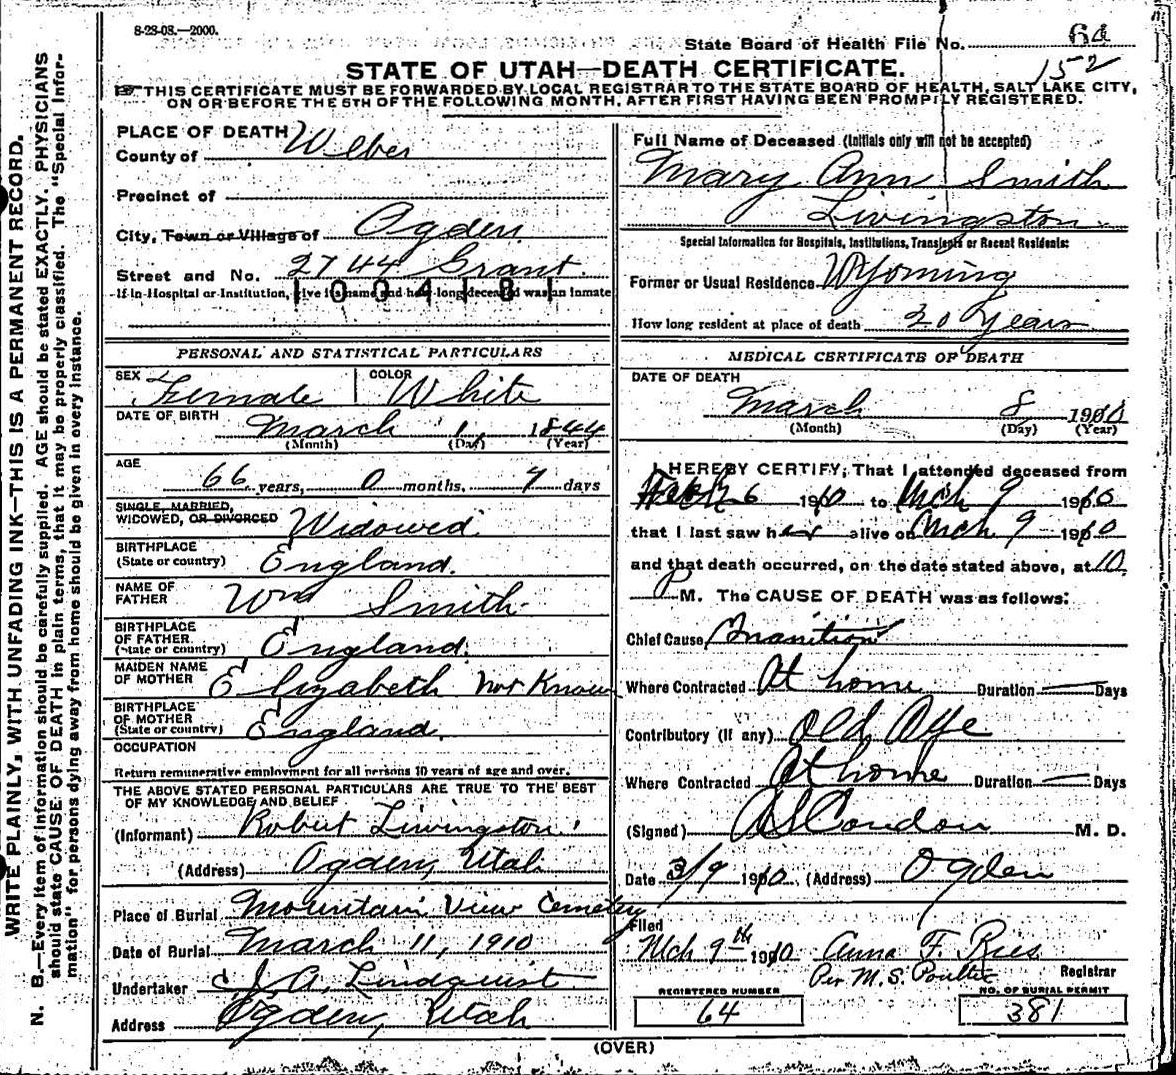 8-28-08.—2000.
State Board of Health File No. 64
152
STATE OF UTAH—DEATH CERTIFICATE.
THIS CERTIFICATE MUST BE FORWARDED BY LOCAL REGISTRAR TO THE STATE BOARD OF HEALTH, SALT LAKE CITY,
ON OR BEFORE THE 5TH OF THE FOLLOWING MONTH, AFTER FIRST HAVING BEEN PROMPTLY REGISTERED.
WRITE PLAINLY, WITH UNFADING INK—THIS IS A PERMANENT RECORD.
N. B.—Every item of information should be carefully supplied. AGE should be stated EXACTLY. PHYSICIANS
should state CAUSE OF DEATH in plain terms, that it may be properly classified. The "Special Infor-
mation" for persons dying away from home should be given in every instance.
PLACE OF DEATH
County of Weber
Precinct of
City, Town or Village of Ogden
Street and No. 2744 Grant.
If in Hospital or Institution, give its name and how long deceased was an inmate
1004181
PERSONAL AND STATISTICAL PARTICULARS
SEX Female COLOR White
DATE OF BIRTH March 1, 1844
(Month) (Day) (Year)
AGE 66 years, 0 months, 7 days
SINGLE, MARRIED,
WIDOWED, OR DIVORCED Widowed
BIRTHPLACE
(State or country) England.
NAME OF
FATHER Wm Smith
BIRTHPLACE
OF FATHER
(State or country) England.
MAIDEN NAME
OF MOTHER Elizabeth Not Known
BIRTHPLACE
OF MOTHER
(State or country) England.
OCCUPATION
Return remunerative employment for all persons 10 years of age and over.
THE ABOVE STATED PERSONAL PARTICULARS ARE TRUE TO THE BEST
OF MY KNOWLEDGE AND BELIEF
(Informant) Robert Livingston
(Address) Ogden, Utah
Place of Burial Mountain View Cemetery
Date of Burial March 11, 1910
Undertaker J. A. Lindquist
Address Ogden, Utah
Full Name of Deceased (Initials only will not be accepted)
Mary Ann Smith
Livingston
Special Information for Hospitals, Institutions, Transients or Recent Residents:
Former or Usual Residence Wyoming
How long resident at place of death 20 Years
MEDICAL CERTIFICATE OF DEATH
DATE OF DEATH
March 8 1910
(Month) (Day) (Year)
I HEREBY CERTIFY, That I attended deceased from
6 1910 to Mch 9 1910
that I last saw her alive on Mch 9 1910
and that death occurred, on the date stated above, at 10
P M. The CAUSE OF DEATH was as follows:
Chief Cause Inanition
Where Contracted At home Duration — Days
Contributory (if any) Old Age
Where Contracted At home Duration — Days
(Signed) A S Condon M. D.
Date 3/9 1910 (Address) Ogden
Filed
Mch 9th 1910 Anna F. Ries
Per M. S. Poulter Registrar
REGISTERED NUMBER
64
NO. OF BURIAL PERMIT
381
(OVER)